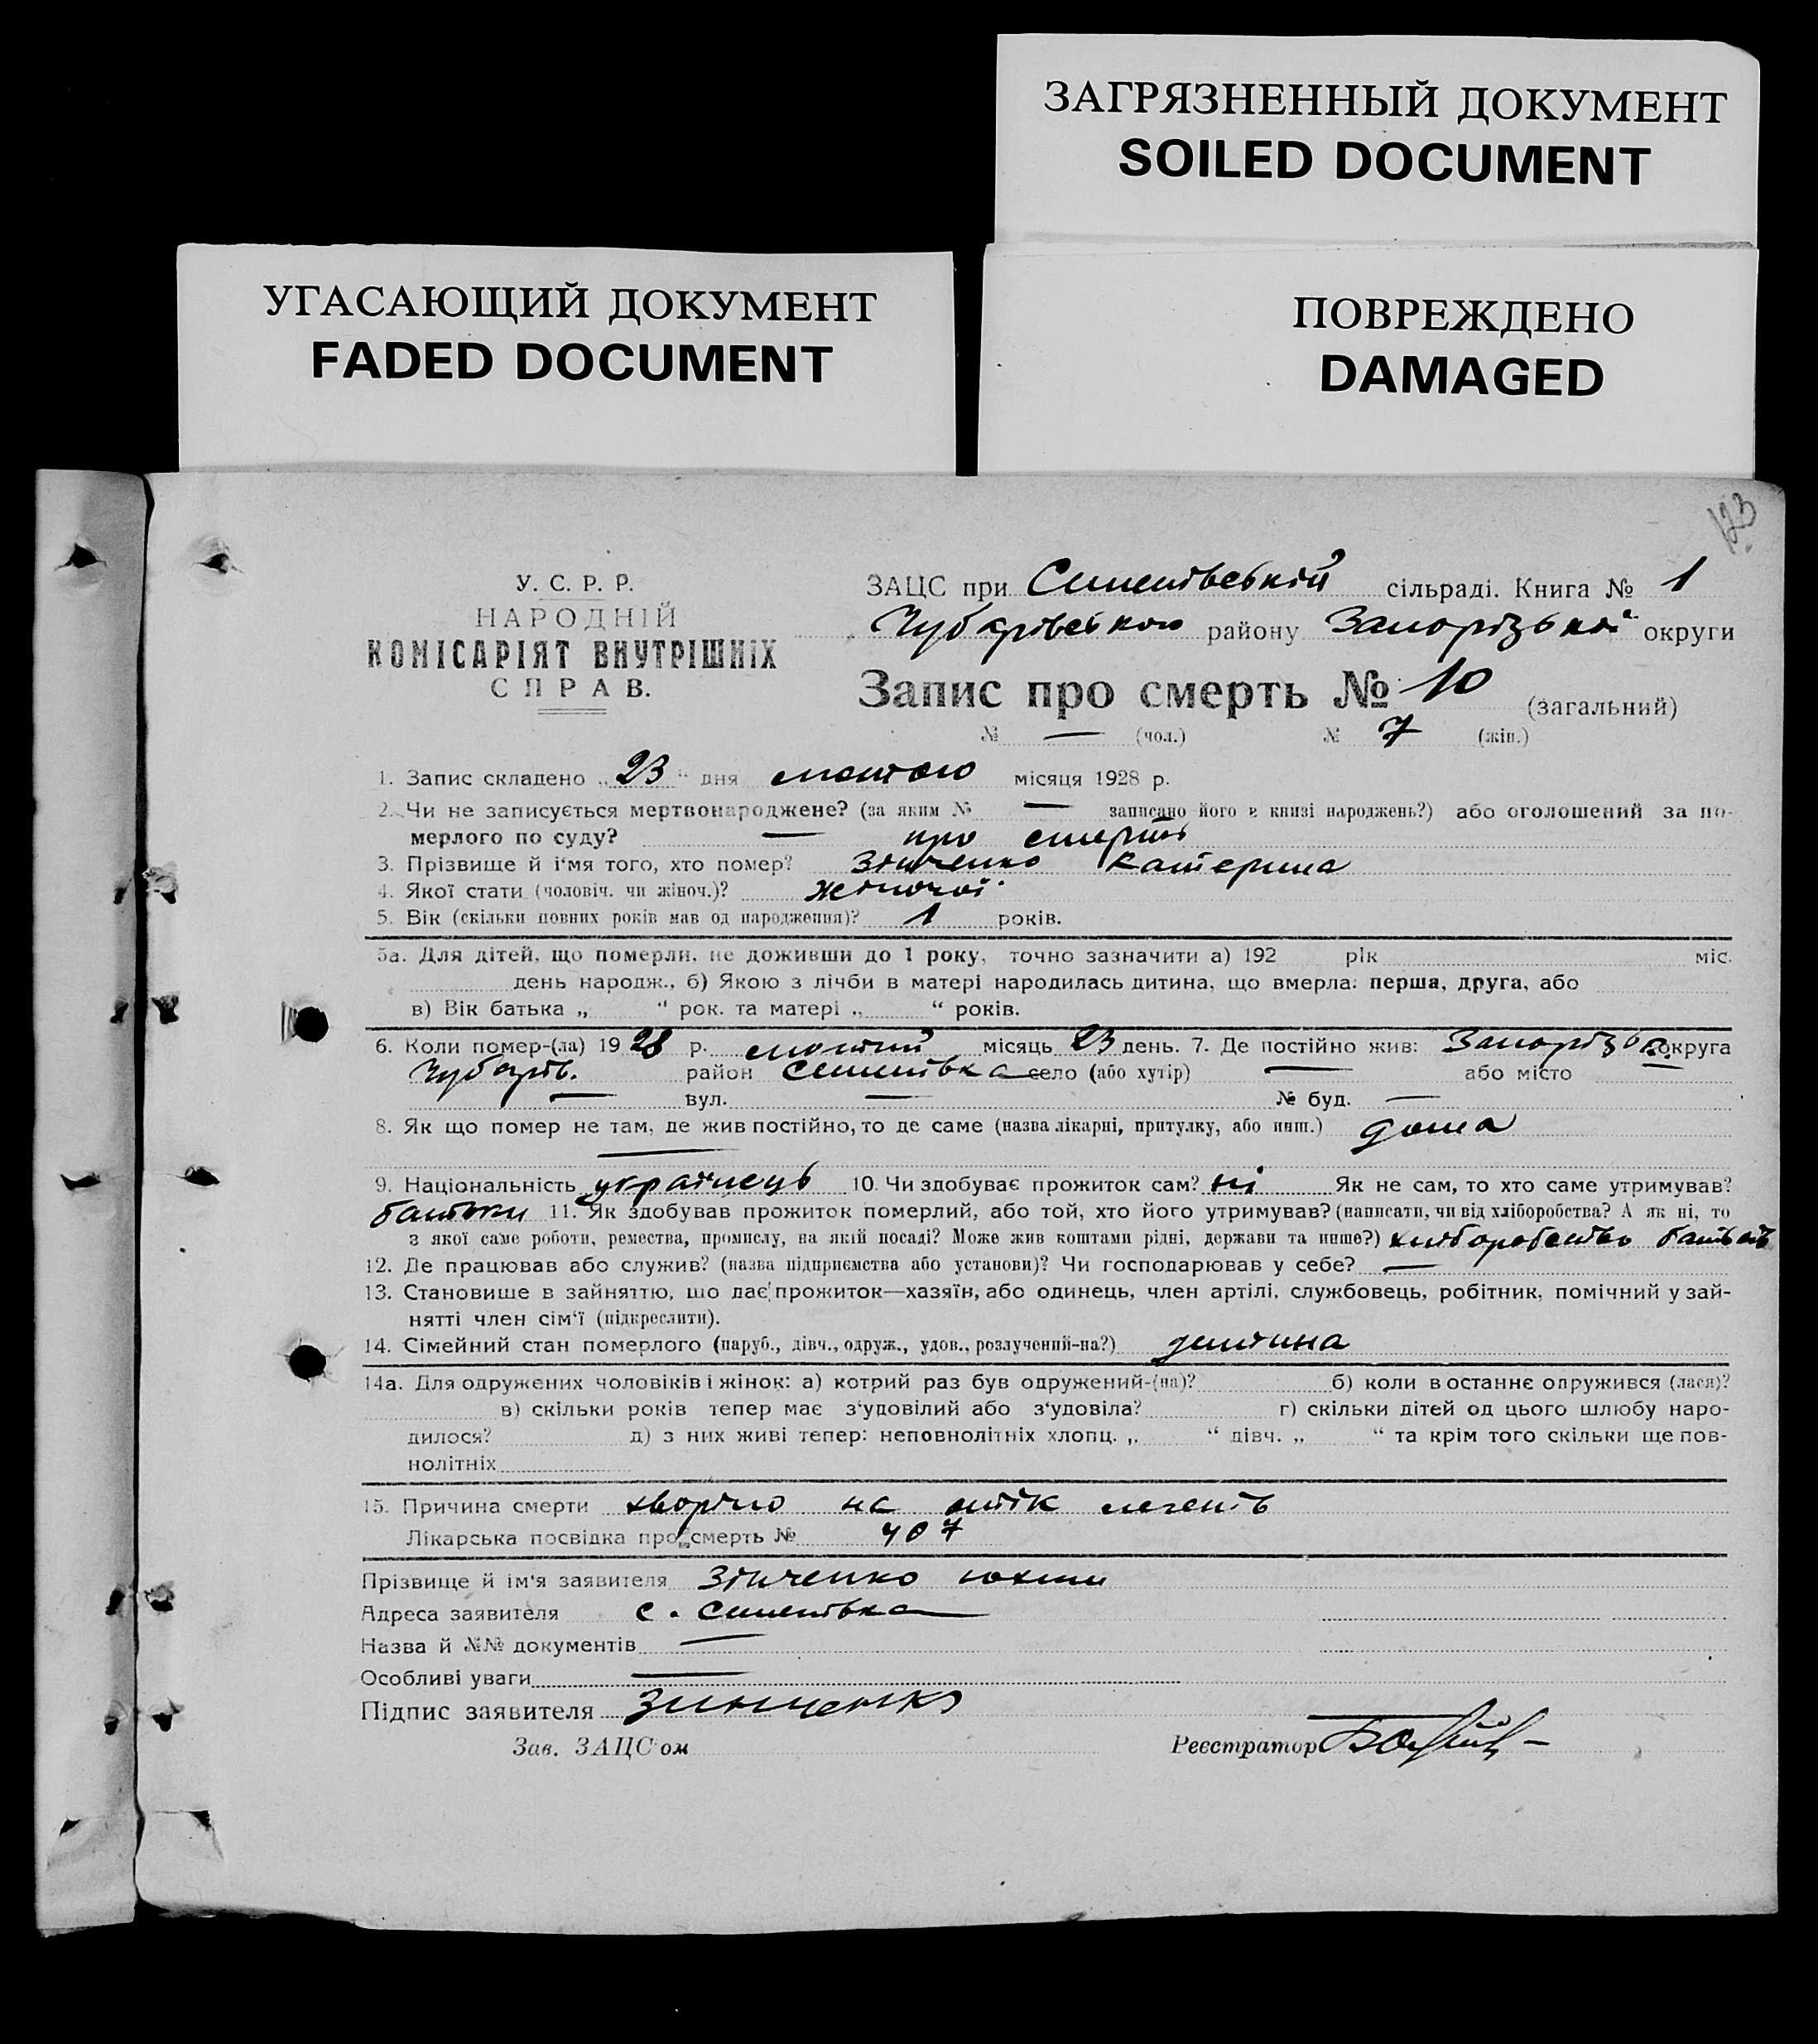 ЗАГРЯЗНЕННЫЙ ДОКУМЕНТ
SOILED DOCUMENT
УГАСАЮЩИЙ ДОКУМЕНТ
FADED DOCUMENT
ПОВРЕЖДЕНО
DAMAGED
123
У. С. Р. Р.
НАРОДНІЙ
КОМІСАРІЯТ ВНУТРІШНІХ
СПРАВ.
ЗАЦС при сільраді. Книга № 1
Чубарівського району Запорізької округи
Запис про смерть № 10 (загальний)
№ — (чол.) № 7 (жін.)
1. Запис складено „ 23 “ дня лютого місяця 1928 р.
2. Чи не записується мертвонароджене? (за яким № — записано його в книзі народжень?) або оголошений за по-
мерлого по суду? — про смерть
3. Прізвище й і'мя того, хто помер? Зінченко Катерина
4. Якої стати (чоловіч. чи жіноч.)? жіночої
5. Вік (скільки повних років мав од народження)? 1 років.
5а. Для дітей, що померли, не доживши до 1 року, точно зазначити а) 192 рік міс.
день народж., б) Якою з лічби в матері народилась дитина, що вмерла: перша, друга, або
в) Вік батька „ “ рок. та матері „ “ років.
6. Коли помер-(ла) 1928 р. лютий місяць 23 день. 7. Де постійно жив: Запорізька округа
Чубарів. район село (або хутір) — або місто
— вул. — № буд. —
8. Як що помер не там, де жив постійно, то де саме (назва лікарні, притулку, або инш.) дома
—
9. Національність українець 10. Чи здобуває прожиток сам? ні Як не сам, то хто саме утримував?
батьки 11. Як здобував прожиток померлий, або той, хто його утримував? (написати, чи від хліборобства? А як ні, то
з якої саме роботи, ремества, промислу, на якій посаді? Може жив коштами рідні, держави та инше?) хліборобство батьків
12. Де працював або служив? (назва підприємства або установи)? Чи господарював у себе? —
13. Становище в зайняттю, що дає прожиток—хазяїн, або одинець, член артілі, службовець, робітник, помічний у зай-
нятті член сім'ї (підкреслити).
14. Сімейний стан померлого (паруб., дівч., одруж., удов., розлучений-на?) дитина
14а. Для одружених чоловіків і жінок: а) котрий раз був одружений-(на)? б) коли в останнє одружився (лася)?
в) скільки років тепер має з'удовілий або з'удовіла? г) скільки дітей од цього шлюбу наро-
дилося? д) з них живі тепер: неповнолітніх хлопц. „ “ дівч. „ “ та крім того скільки ще пов-
нолітніх
15. Причина смерти хворіло на отік легенів
Лікарська посвідка про смерть № 407
Прізвище й ім'я заявителя Зінченко Юхим
Адреса заявителя с.
Назва й №№ документів —
Особливі уваги —
Підпис заявителя Зинченко
Зав. ЗАЦС'ом Реєстратор